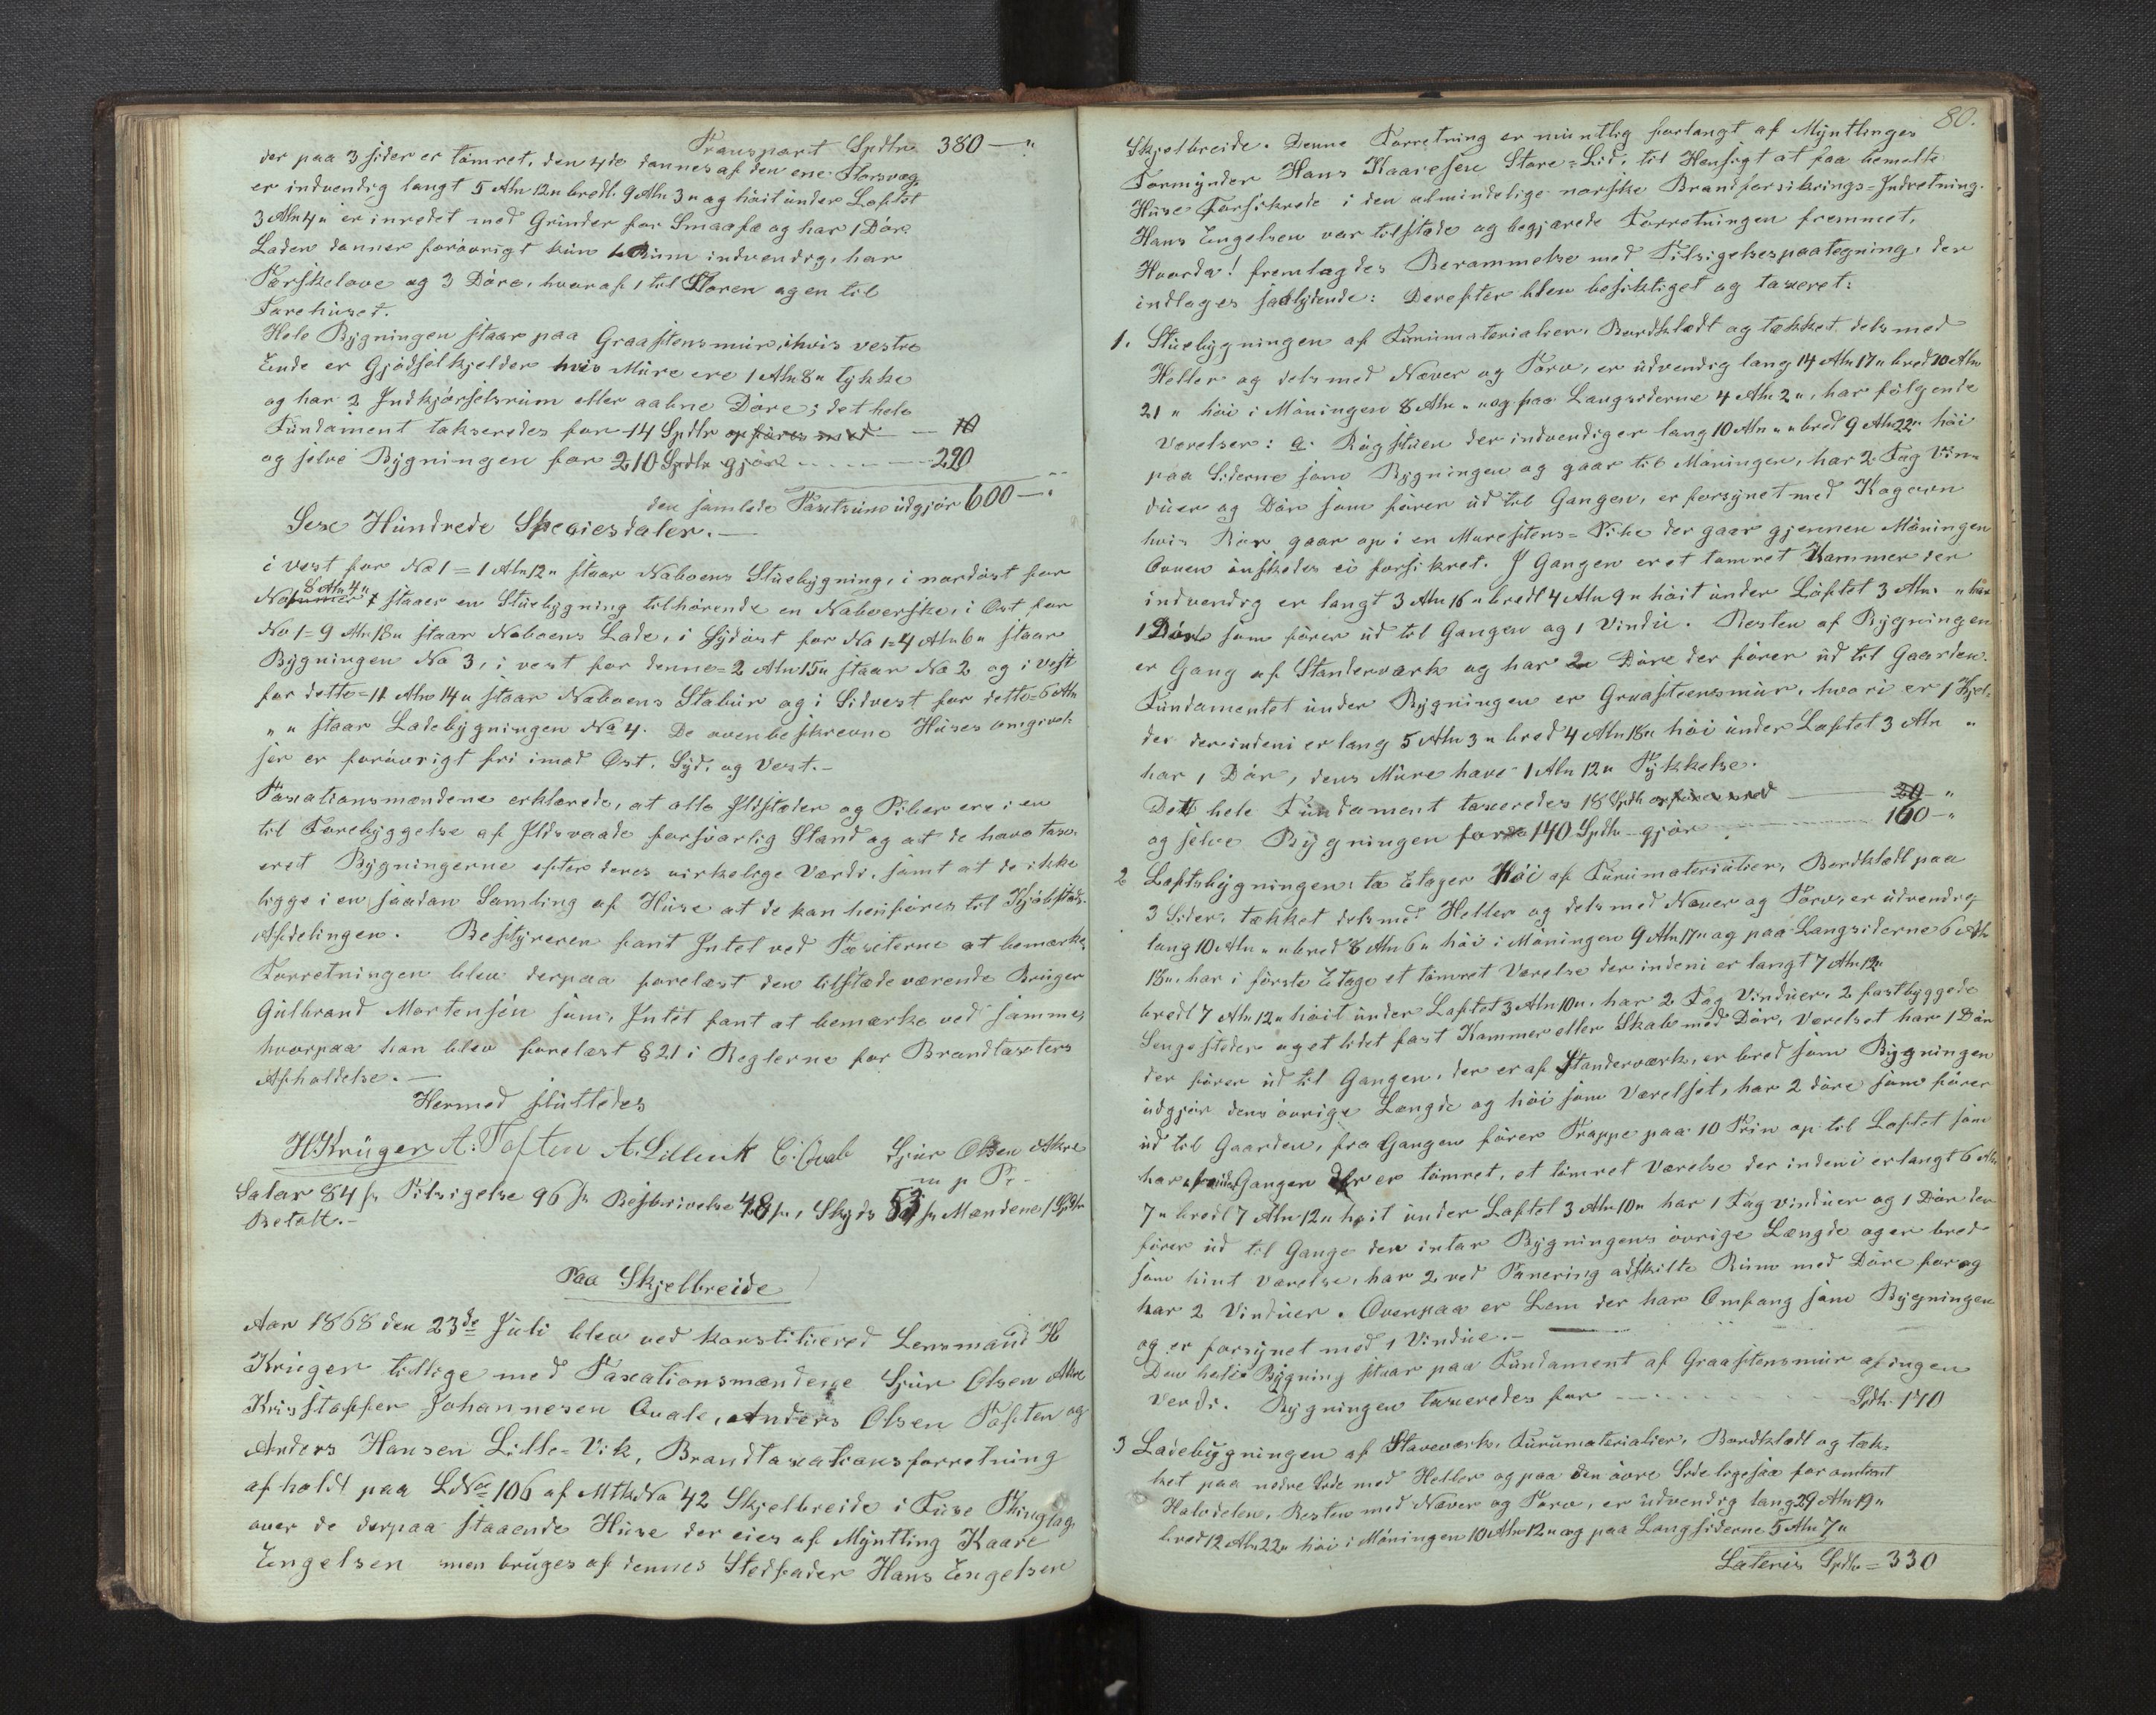 Transport Spdlr. 380 — "
der paa 3 sider er tømret, den 4de dannes af den ene Florsvæg,
er indvendig langt 5 Aln 12" bredt 9 Aln 3" og høit under Loftet
3 Aln 4" er inredet med Grinder for Smaafæ og har 1 Dør.
Laden danner forøvrigt kun 1 Rum indvendig, har
Tærskelove og 3 Døre, hvoraf 1 til Floren og en til
Farehuset.
Hele Bygningen staar paa Graastensmur, i hvis vestre
Ende er Gjødselkjelder hvis Mure ere 1 Aln 8" tykke
og har 2 Indkjørselsrum eller aabne Døre; det hele
Fundament takseredes for 14 Spdlr opføres med — 10
og selve Bygningen for 210 Spdlr gjør - - - - 220
den samlede Taxtsum udgjør 600 — "
Sex Hundrede Speciesdaler. —
i vest for No 1 = 1 Aln 12" staar Naboens Stuebygning, i nordøst for
8 Aln 4"
staaer en Stuebygning tilhørende en Naboerske, i Øst for
No 1 = 9 Aln 18" staar Naboens Lade, i Sydøst for No 1 = 4 Aln 6" staar
Bygningen No 3, i vest for denne = 2 Aln 15" staar No 2 og i Vest
for dette = 11 Aln 14" staar Naboens Stabur og i Sidvest for dette = 6 Aln
" " staar Ladebygningen No 4. De ovenbeskrevne Huses omgivel-
ser er forøvrigt fri imod Øst, Syd, og Vest. –
Taxationsmændene erklærede, at alle Ildsteder og Piber ere i en
til Forebyggelse af Ildsvaade forsvarlig Stand og at de have tax-
eret Bygningerne efter deres virkelige Værdi, samt at de ikke
ligge i en saadan Samling af Huse at de kan henføres til Kjøbstads-
Afdelingen. Bestyreren fant Intet ved Taxterne at bemærke.
Forretningen blev derpaa forelæst den tilstædeværende Bruger
Gulbrand Mortensen som, Intet fant at bemærke ved samme,
hvorpaa han blev forelæst § 21 i Reglerne for Brandtaxters
Afholdelse. —
Hermed sluttedes
H. Krüger A. Toften A. Lillevik C. Qvale Sjur Olsen Akre
m p P. -
Salar 84 s, Tilsigelse 96 s, Beskrivelse 48 s, Skyds 53 s, Mændene 1 Spdlr
Betalt. -
Paa Skjelbreide
Aar 1868 den 23de Juli blev ved konstituered Lensmand H
Krüger tillige med Taxationsmændene Sjur Olsen Akre
Kristoffer Johannesen Qvale, Anders Olsen Toften og
Anders Hansen Lille-Vik, Brandtaxationsforretning
afholdt paa LNo 106 af MtkNo 42 Skjelbreide i Fuse Thinglag
over de derpaa staaende Huse der eies af Myntling Kaare
Engelsen men bruges af dennes Stedfader Hans Engelsen
80.
Skjelbreide. Denne Forretning er muntlig forlangt af Myntlinges
Formynder Hans Kaaresen Store-Lid, til Hensigt at faa bemelte
Huse Forsikrede i den almindelige norske Brandforsikrings-Indretning.
Hans Engelsen var tilstæde og begjærede Forretningen fremmet.
Hvorda! fremlagdes Berammelse med Tilsigelsespaategning, der
indtages saalydende: Derefter blev besiktiget og taxeret:
1. Stuebygningen af Furumaterialier, Bordklædt og tækket dels med
Heller og dels med Næver og Torv, er udvendig lang 14 Aln 17" bred 10 Aln
21" høi i Møningen 8 Aln " " og paa Langsiderne 4 Aln 2", har følgende
Værelser: a. Røgstuen der indvendig er lang 10 Aln " " bred 9 Aln 22" høi
paa Siderne som Bygningen og gaar til Møningen, har 2 Fag Vin-
duer og Dør som fører ud til Gangen, er forsynet med Kogeovn
hvis Rør gaar op i en Murestens-Pibe der gaar gjennem Møningen
Ovnen ønskedes ei forsikret. I Gangen er et tømret Kammer der
indvendig er langt 3 Aln 16" bredt 4 Aln 9" høit under Loftet 3 Aln " har
1 Dør som fører ud til Gangen og 1 Vindu. Resten af Bygningen
er Gang af Standerværk og har 2 Døre der fører ud til Gaarden.
Fundamentet under Bygningen er Graasteensmur, hvori er 1 Kjel-
der der indeni er lang 5 Aln 3" bred 4 Aln 18" høi under Loftet 3 Aln "
har 1 Dør, dens Mure have 1 Aln 12" Tykkelse.
Dett hele Fundament taxeredes 18 Spdlr opføres med — 20 "
og selve Bygningen for 140 Spdlr - gjør - - - - 160 - "
2 Loftsbygningen, to Etager Høi af Furumaterialier, Bordklædt paa
3 Sider, tækket dels med Heller og dels med Næver og Torv, er udvendig
lang 10 Aln " " bred 8 Aln 6" høi i Møningen 9 Aln 17" og paa Langsiderne 6 Aln
18", har i første Etage et tømret Værelse der indeni er langt 7 Aln 12"
bredt 7 Aln 12" høit under Loftet 3 Aln 10", har 2 Fag Vinduer, 2 fastbyggede
Sengesteder og et lidet fast Kammer eller Skab med Dør, Værelset har 1 Dør
der fører ud til Gangen, der er af Standerværk, er bred som Bygningen
udgjør dens øvrige Længde og høi som Værelset, har 2 døre som fører
ud til Gaarden, fra Gangen fører Trappe paa 10 Trin op til Loftet som
har foruden Gangen der er tømret, et tømret Værelse der indeni er langt 6 Aln
7" bredt 7 Aln 12" høit under Loftet 3 Aln 10" har 1 Fag Vinduer og 1 Dør der
fører ud til Gange der intar Bygningens øvrige Længde og er bred
som hint Værelse, har 2 ved Panering adskilte Rum med Døre for og
har 2 Vinduer. Ovenpaa er Lem der har Omfang som Bygningen
og er forsynet med 1 Vindue. –
Den hele Bygning staar paa Fundament af Graastensmur af ingen
Verdi. Bygningen taxeredes for - - - - Spdlr. 170
3 Ladebygningen af Staveværk, Furumaterialier, Bordklædt og tæk-
ket paa nedre Side med Heller og paa den øvre Side ligesaa for omtrent
Halvdelen, Resten med Næver og Torv, er udvendig lang 29 Aln 19"
bred 12 Aln 22" høi i Møningen 10 Aln 12" og paa Langsiderne 5 Aln 7"
Lateris Spdlr = 330